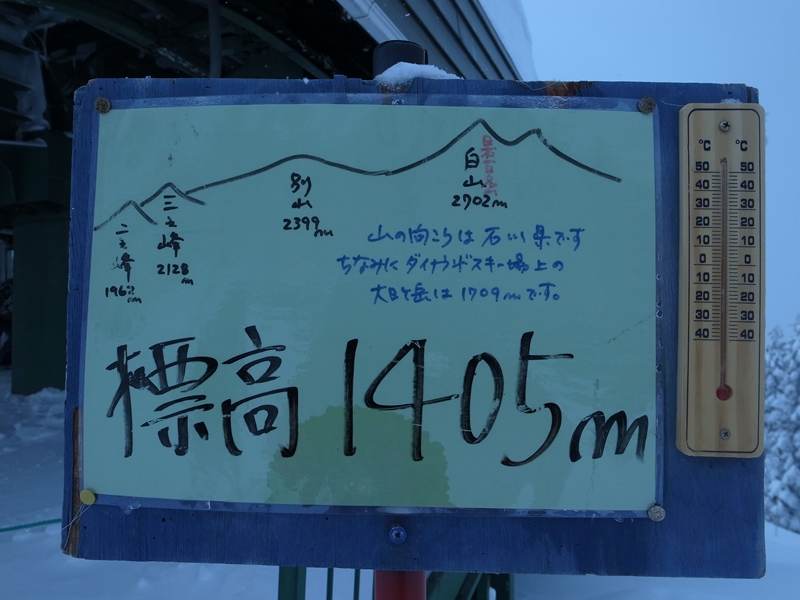 二之峰
1962m
三之峰
2128m
別山
2399m
白山
2702m
山の向こうは石川県です
ちなみに ダイナランドスキー場上の
大日ヶ岳は1709mです。
標高 1405m
℃ ℃
50 50
40 40
30 30
20 20
10 10
0 0
10 10
20 20
30 30
40 40